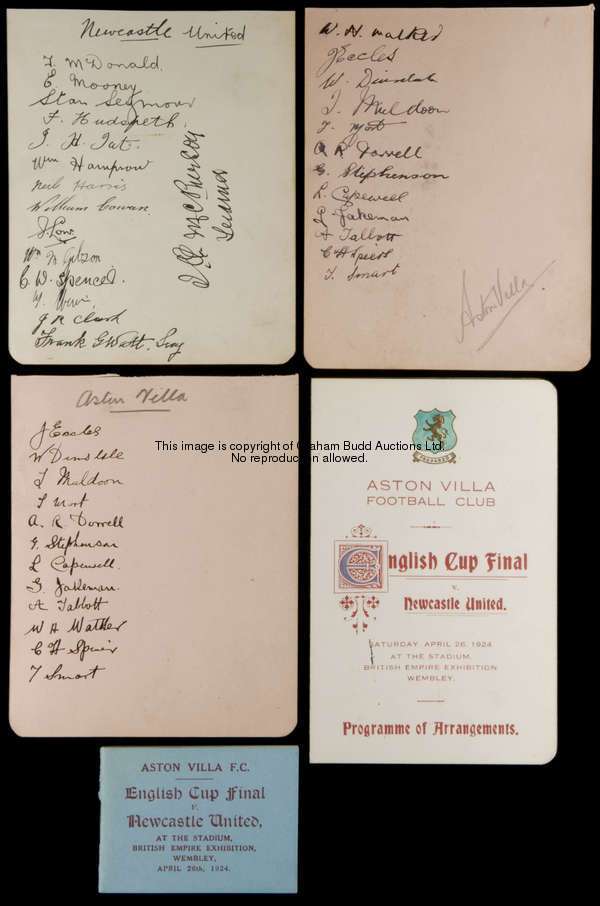 Newcastle United
T. McDonald.
E. Mooney
Stan Seymour
F. Hudspeth.
J. H. Tat.
Wm Hampson
Neil Harris
William Cowan.
J. Low
Wm M Gibson
C. W. Spencer.
J R Clark
Frank G Watt. Secy
W. H. Walker
J Eccles
W.
T. Muldoon
T. Mort
A R Dorrell
G. Stephenson
L. Capewell
G. Jakeman
A Talbott
C H Spiers
T. Smart
Aston Villa.
Aston Villa
J Eccles
W Dinsdale
T Muldoon
T Mort
A. R Dorrell
G. Stephenson
L Capewell.
G. Jakeman
A Talbott
W H Walker
C H Spiers
T Smart
PREPARED
ASTON VILLA
FOOTBALL CLUB
English Cup Final
v.
Newcastle United.
SATURDAY APRIL 26, 1924
AT THE STADIUM.
BRITISH EMPIRE EXHIBITION
WEMBLEY.
Programme of Arrangements.
ASTON VILLA F.C.
English Cup Final
v.
Newcastle United,
AT THE STADIUM,
BRITISH EMPIRE EXHIBITION,
WEMBLEY,
APRIL 26th, 1924.
This image is copyright of Graham Budd Auctions Ltd.
No reproduction allowed.